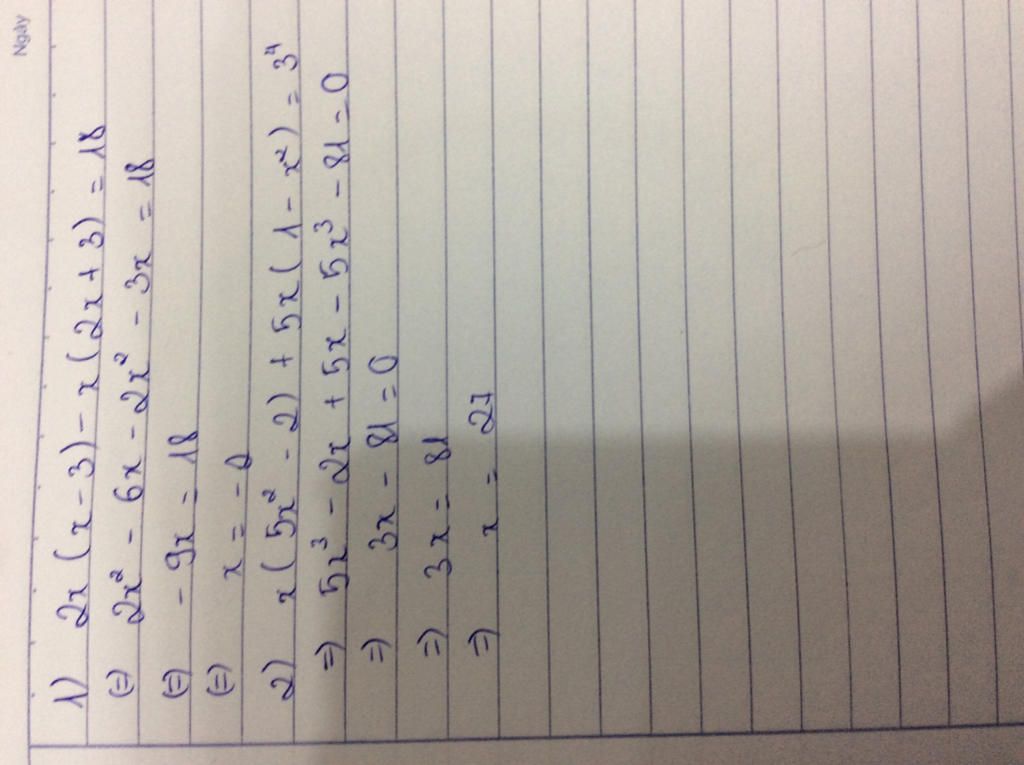 Ngày
1) 2x(x-3) - x(2x+3) = 18
(=) 2x² - 6x - 2x² - 3x = 18
(=) -9x = 18
(=) x = -2
2) x(5x² - 2) + 5x(1 - x²) = 3⁴
=) 5x³ - 2x + 5x - 5x³ - 81 = 0
=) 3x - 81 = 0
=) 3x = 81
=) x = 27